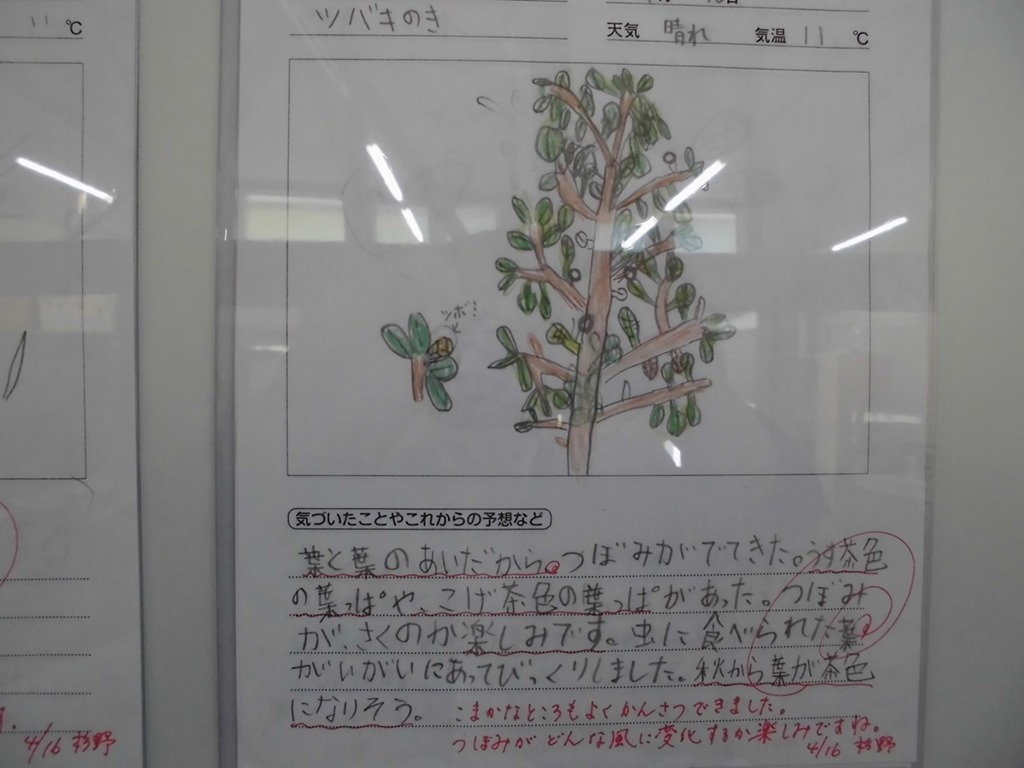 11 ℃
ツバキのき
天気 晴れ 気温 11 ℃
ツボミ
気づいたことやこれからの予想など
葉と葉のあいだから。つぼみがでてきた。うす茶色
の葉っぱや、こげ茶色の葉っぱがあった。つぼみ
が、さくのが楽しみです。虫に食べられた葉
がいがいにあってびっくりしました。秋から葉が茶色
になりそう。
こまかなところもよくかんさつできました。
つぼみがどんな風に変化するか楽しみですね。
4/16 杉野
す。
4/16 杉野